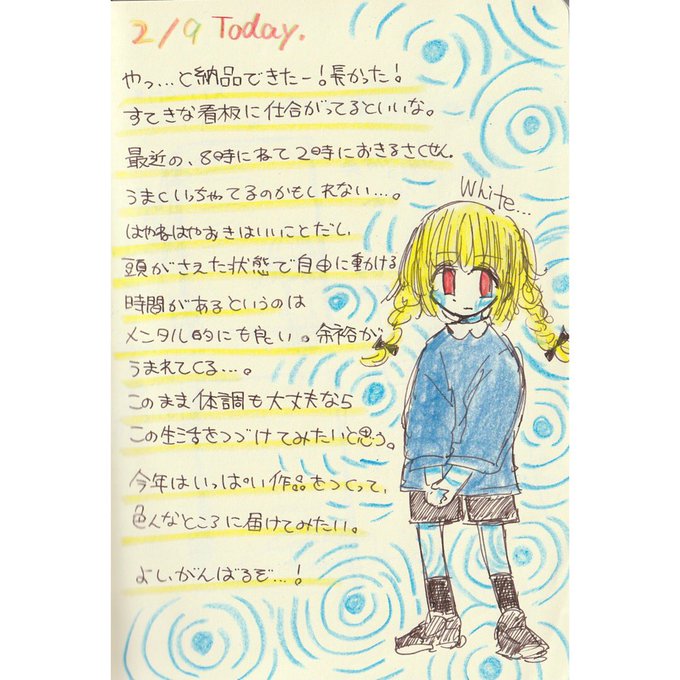 2/9 Today.
やっ…と納品できたー!長かった!
すてきな看板に仕合がってるといいな。
最近の、8時にねて2時におきるさくせん
うまくいっちゃってるのかもしれない…。
はやねはやおきはいいことだし、
頭がさえた状態で自由に動ける
時間があるというのは
メンタル的にも良い。余裕が
うまれてくる…。
このまま体調も大丈夫なら
この生活をつづけてみたいと思う。
今年はいっぱい作品をつくって、
色んなところに届けてみたい。
よし、がんばるぞ…!
White...